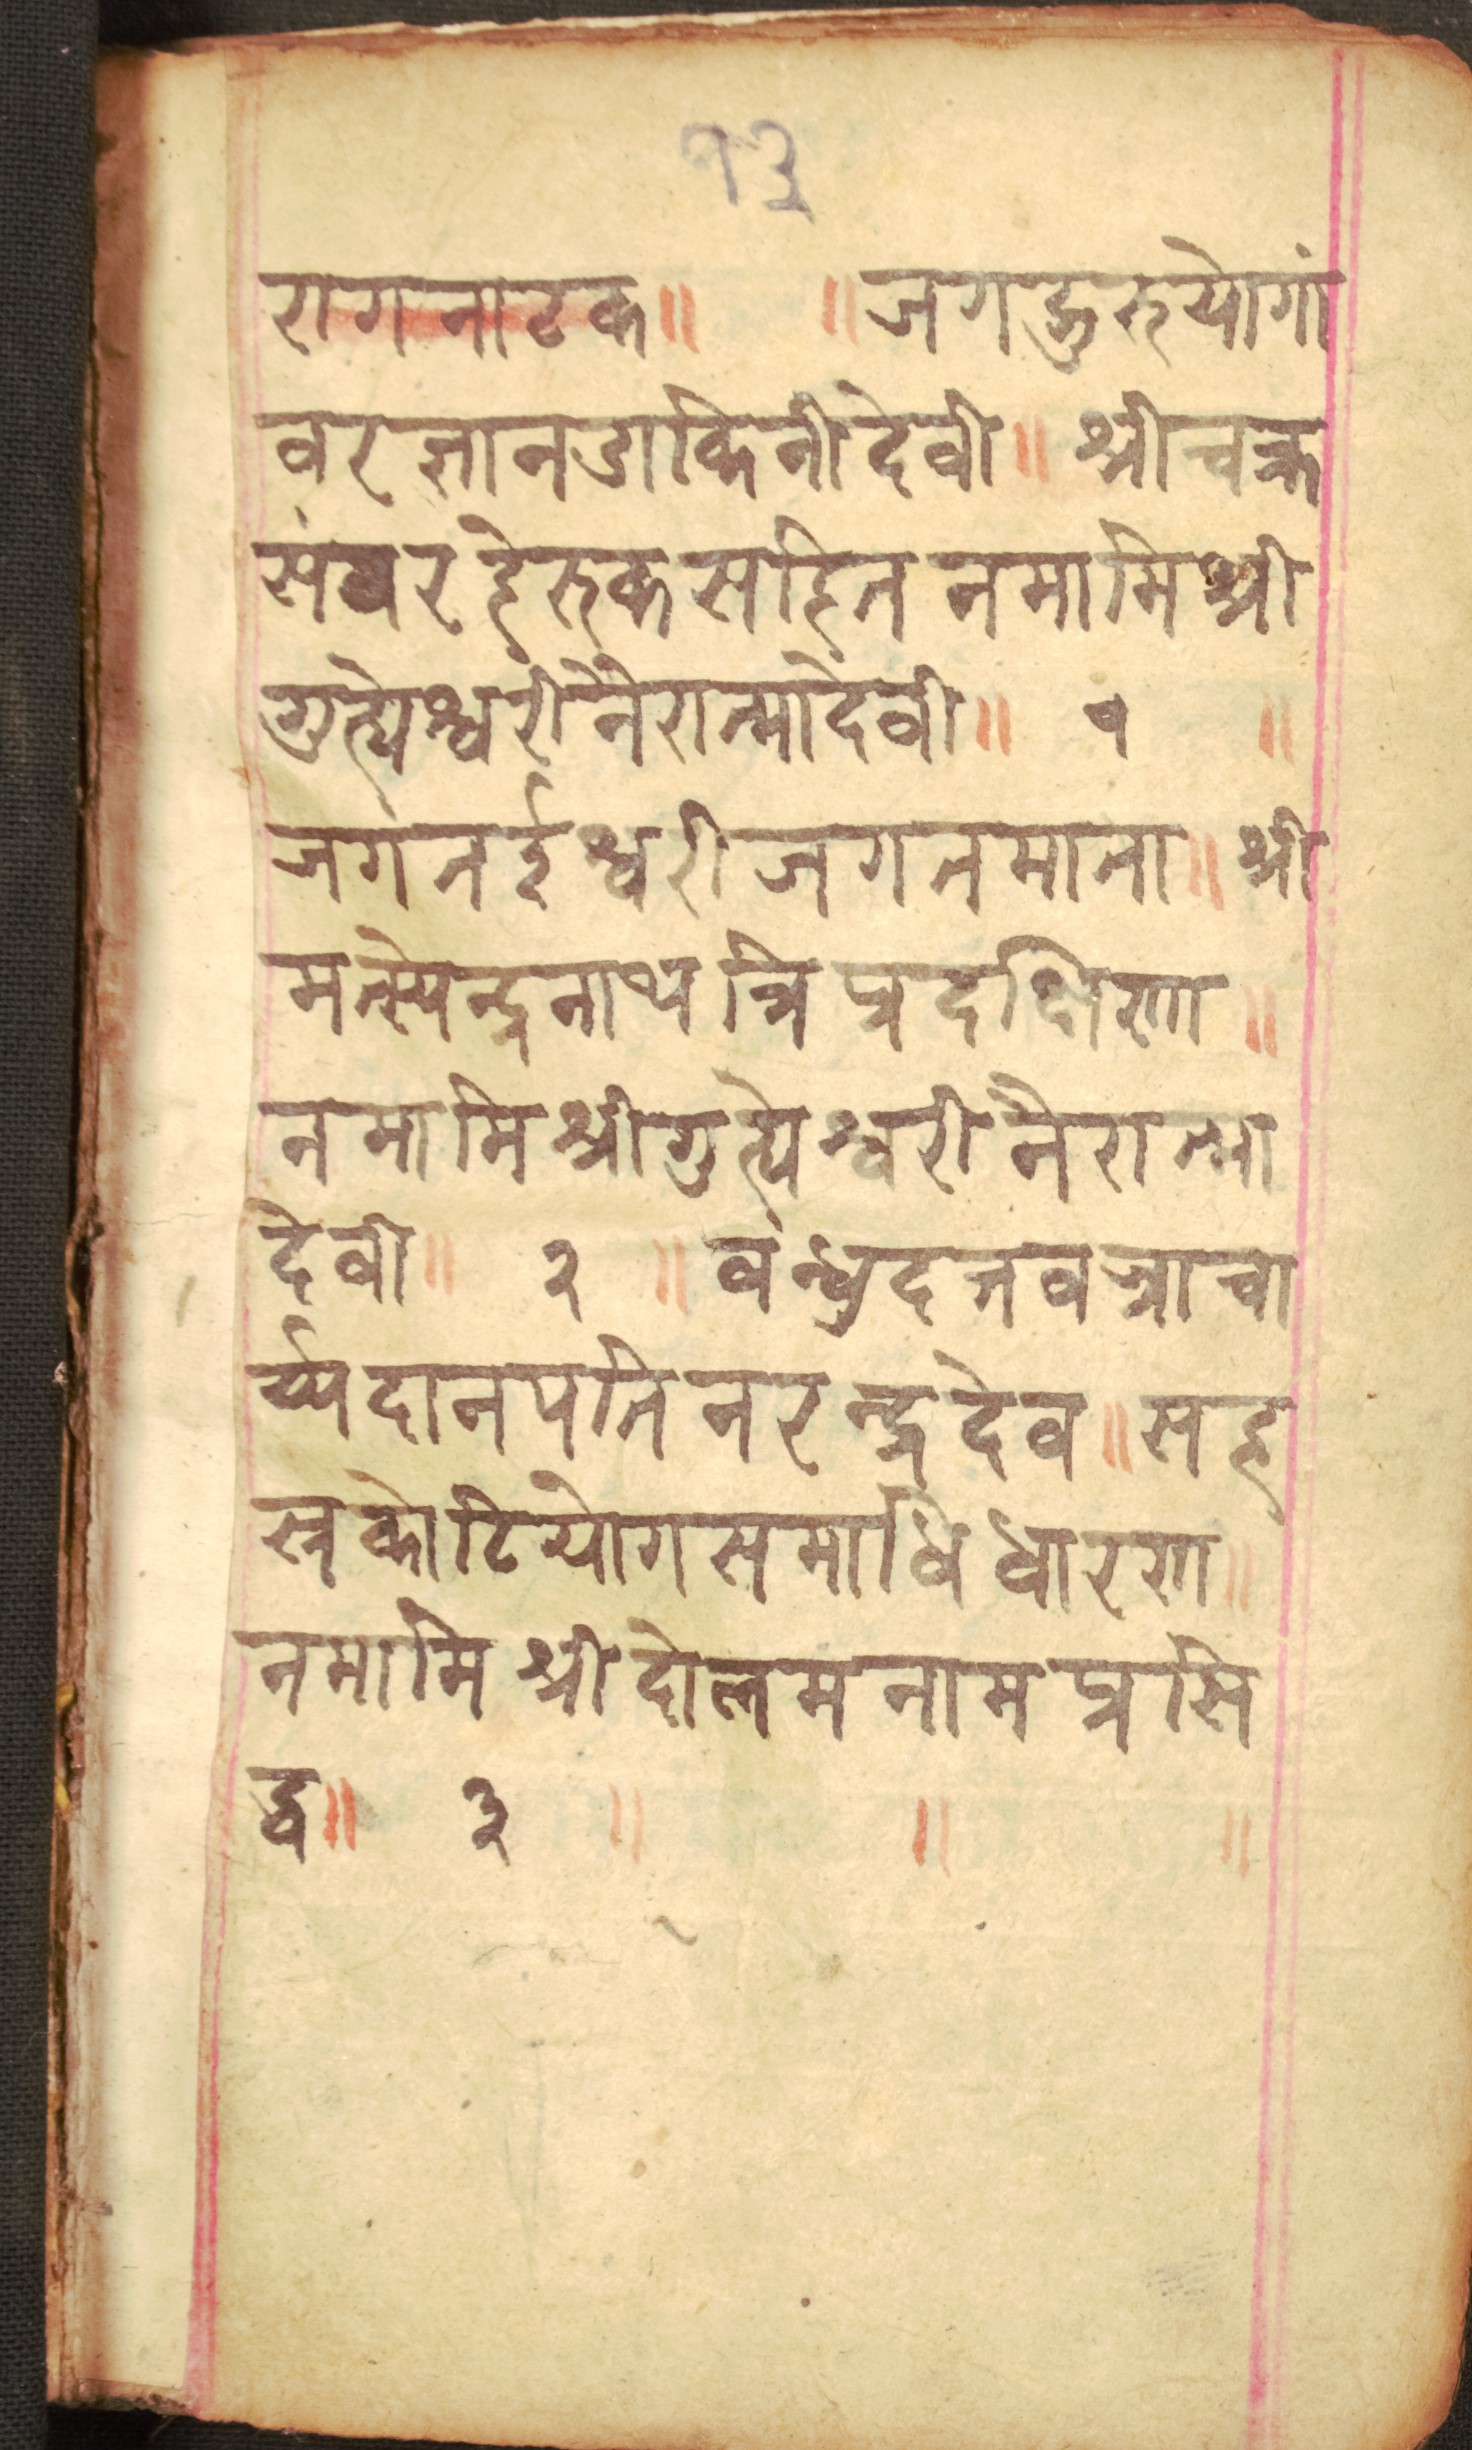 १३
राग नाटक॥ ॥जगद्गुरुयोगां
वरज्ञानडाकिनीदेवी॥ श्रीचक्र
संवरहेरुकसहित नमामिश्री
गुह्येश्वरीनैरात्मादेवी॥ १ ॥
जगतईश्वरीजगतमाता॥ श्री
मत्स्येन्द्रनाथत्रिप्रदक्षिणा॥
नमामिश्रीगुह्येश्वरीनैरात्मा
देवी॥ २ ॥ वंन्धुदत्तवज्राचा
र्य्यदानपतिनरन्द्रदेव॥ सह
स्रकोटियोगसमाधिधारणा॥
नमामिश्रीदोलमनामप्रसि
द्ध॥ ३ ॥ ॥ ॥